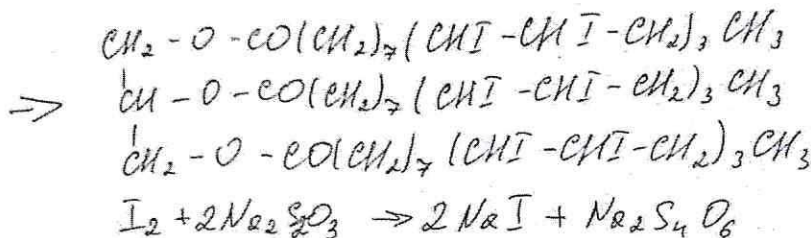 CH₂ - O - CO(CH₂)₇(CHI - CHI - CH₂)₃ CH₃
⇒ CH - O - CO(CH₂)₇(CHI - CHI - CH₂)₃ CH₃
CH₂ - O - CO(CH₂)₇(CHI - CHI - CH₂)₃ CH₃
I₂ + 2Na₂S₂O₃ → 2NaI + Na₂S₄O₆